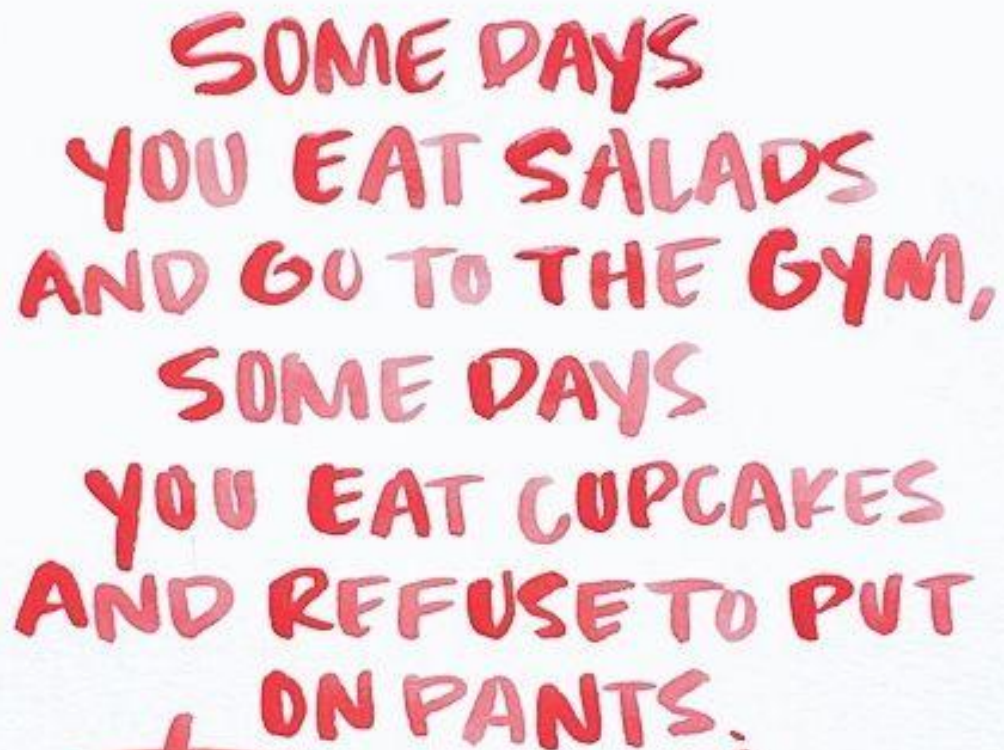 SOME DAYS
YOU EAT SALADS
AND GO TO THE GYM,
SOME DAYS
YOU EAT CUPCAKES
AND REFUSE TO PUT
ON PANTS.